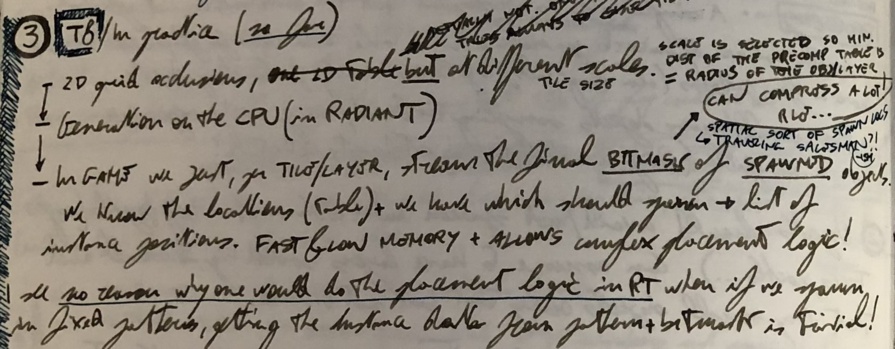 ③ TB/In practice (so far)
- 2D grid occlusions, one 2D Table but at different scales.
TILE SIZE
SCALE IS SELECTED SO MIN.
DIST OF THE PRECOMP TABLE IS
= RADIUS OF THE OBJ/LAYER
CAN COMPRESS A LOT!
A LOT...
- Generation on the CPU (in RADIANT)
SPATIAL SORT OF SPAWN LOCS
↳ TRAVELING SALESMAN?!
- In GAME we just, per TILE/LAYER, stream the final BITMASK of SPAWNED objects.
We know the locations (Table) + we have which should spawn → list of
instance positions. FAST & LOW MEMORY + ALLOWS complex placement logic!
no reason why one would do the placement logic in RT when if we spawn
in fixed patterns, getting the instance data from pattern + bitmask is trivial!